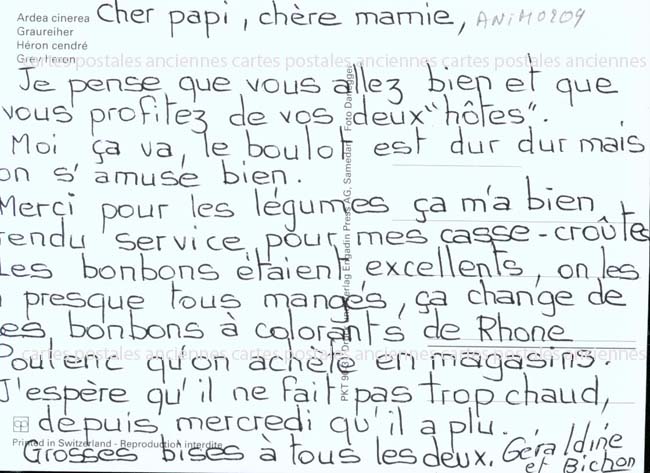 Ardea cinerea
Graureiher
Héron cendré
Grey heron
Cher papi, chère mamie,
ANIM0209
cartes postales anciennes cartes postales anciennes cartes postales anciennes
Je pense que vous allez bien et que
vous profitez de vos deux "hôtes".
Moi ça va, le boulot est dur dur mais
on s'amuse bien.
Merci pour les légumes ça m'a bien
rendu service pour mes casse-croûte
Les bonbons étaient excellents, on les
a presque tous mangés, ça change de
es bonbons à colorants de Rhone
Poulenc qu'on achète en magasins.
cartes postales anciennes cartes postales anciennes cartes postales anciennes
J'espère qu'il ne fait pas trop chaud,
depuis mercredi qu'il a plu.
Grosses bises à tous les deux. Géraldine
et Bichon
Printed in Switzerland - Reproduction interdite
Engadin Press AG, Samedan Foto Danegger